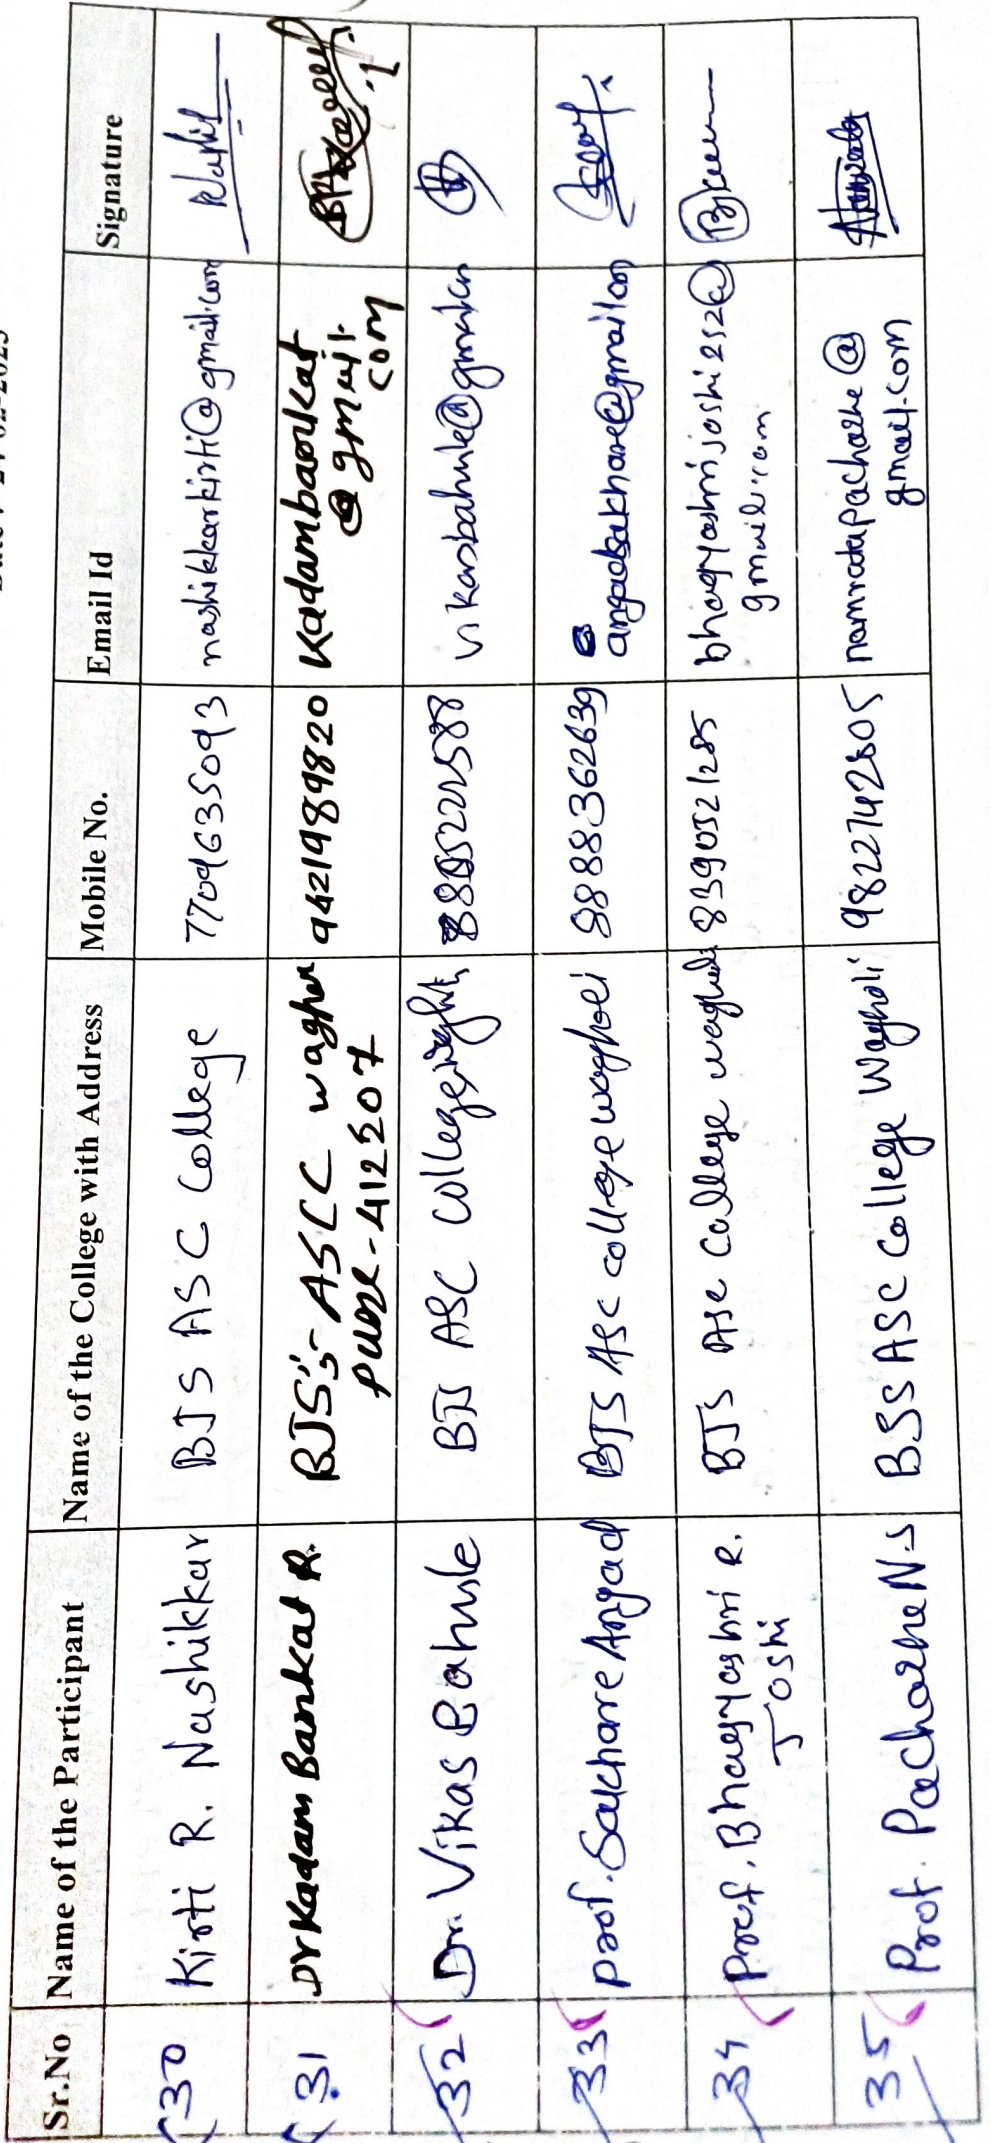 Sr.No Name of the Participant Name of the College with Address Mobile No. Email Id Signature
30 Kirti R. Nashikkar BJS ASC College 7709635093 nashikkarkirti@gmail.com
31 Dr Kadam Bankat R. BJS's- ASC wagholi 9421989820 Kadambankat
Pune-412207 @gmail.
com
32 Dr. Vikas Bahule BJS ASC College, vikasbahule@gmail.com
33 Prof. Sakhare Angad BJS ASC college wagholi 8888362639 angadsakhare@gmail.com
34 Prof. Bhagyashri R. BJS ASC College wagholi 8390521285 bhagyashrijoshi252@
Joshi gmail.com
35 Prof. Pacharne N.S BJS ASC College Wagholi 9822742805 namratapacharne@
gmail.com